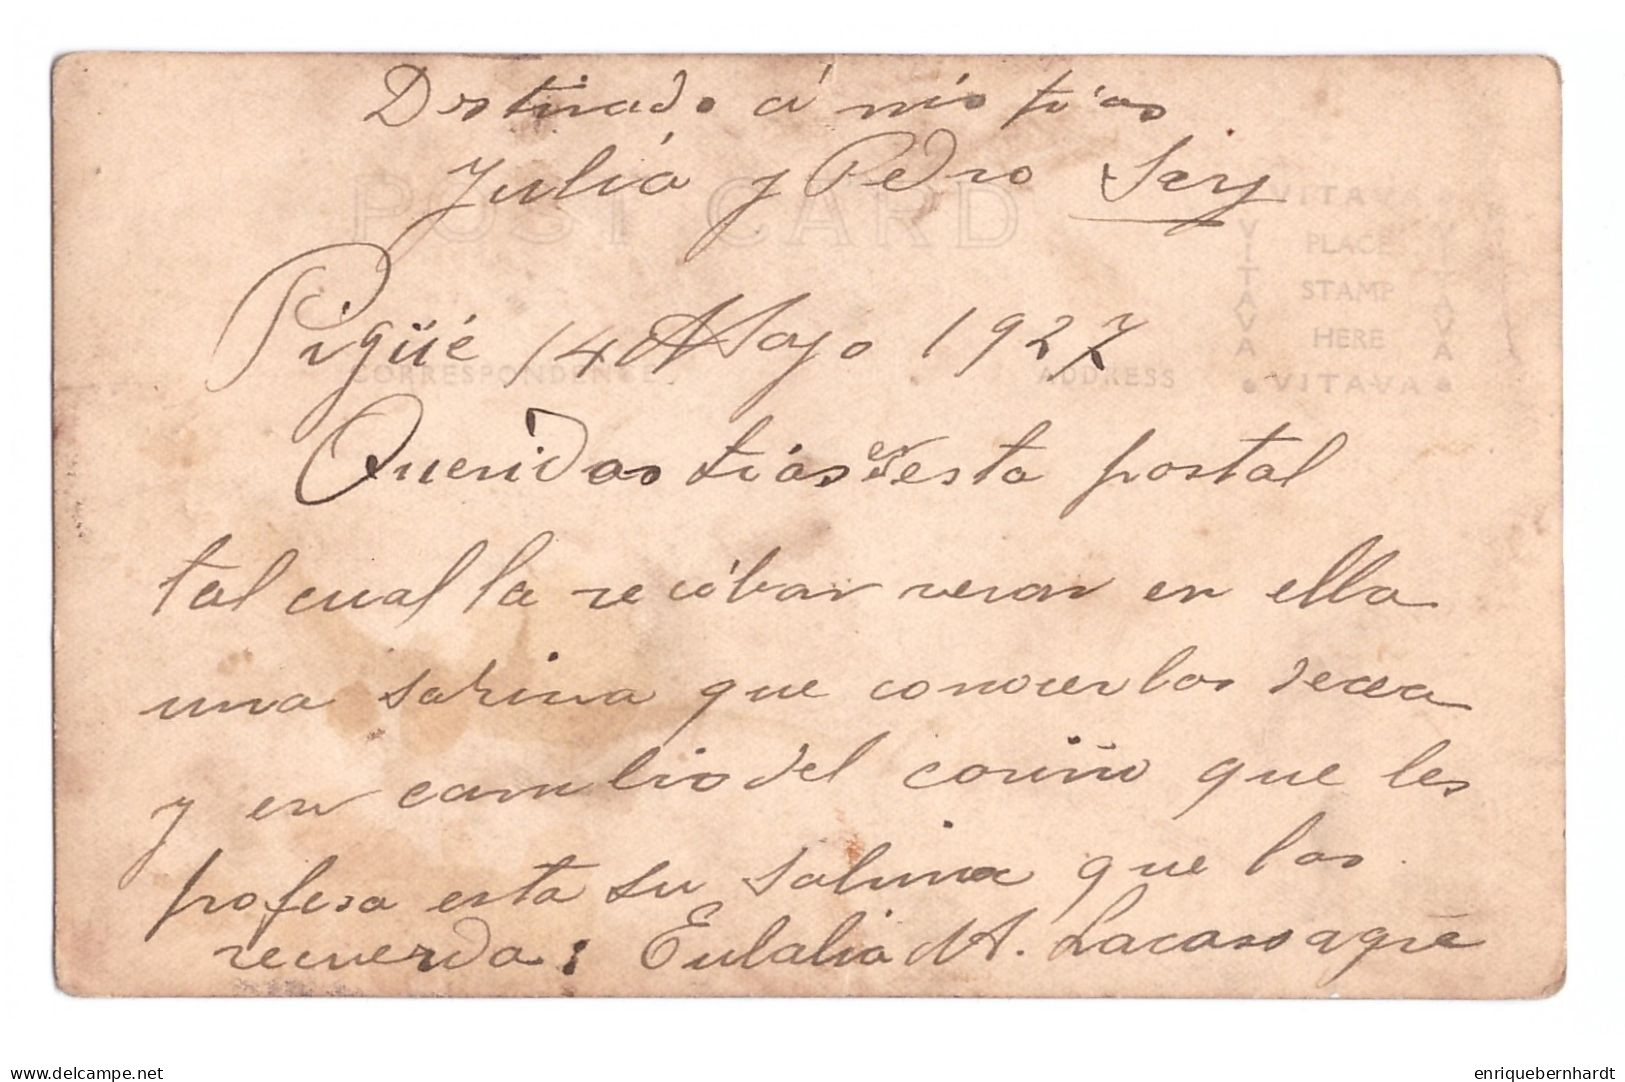 Destinado á mis tios
Julia y Pedro Sery
POST CARD
VITAVA
PLACE
STAMP
HERE
VITAVA
Pigüé 14 Mayo 1927
CORRESPONDENCE
ADDRESS
Queridos tios en esta postal
tal cual la recibar veran en ella
una sobrina que conocerlos decea
y en cambio del cariño que les
profesa esta su sobrina que los
recuerda: Eulalia M. Lacassagne
enriquebernhardt
www.delcampe.net